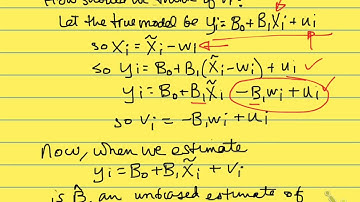 Let the true model be yi = B0 + B1Xi + ui
so Xi = X̃i - wi
so yi = B0 + B1(X̃i - wi) + ui ✓
yi = B0 + B1X̃i - B1wi + ui ✓
so vi = -B1wi + ui
Now, when we estimate
yi = B0 + B1X̃i + vi
is B̂, an unbiased estimate of